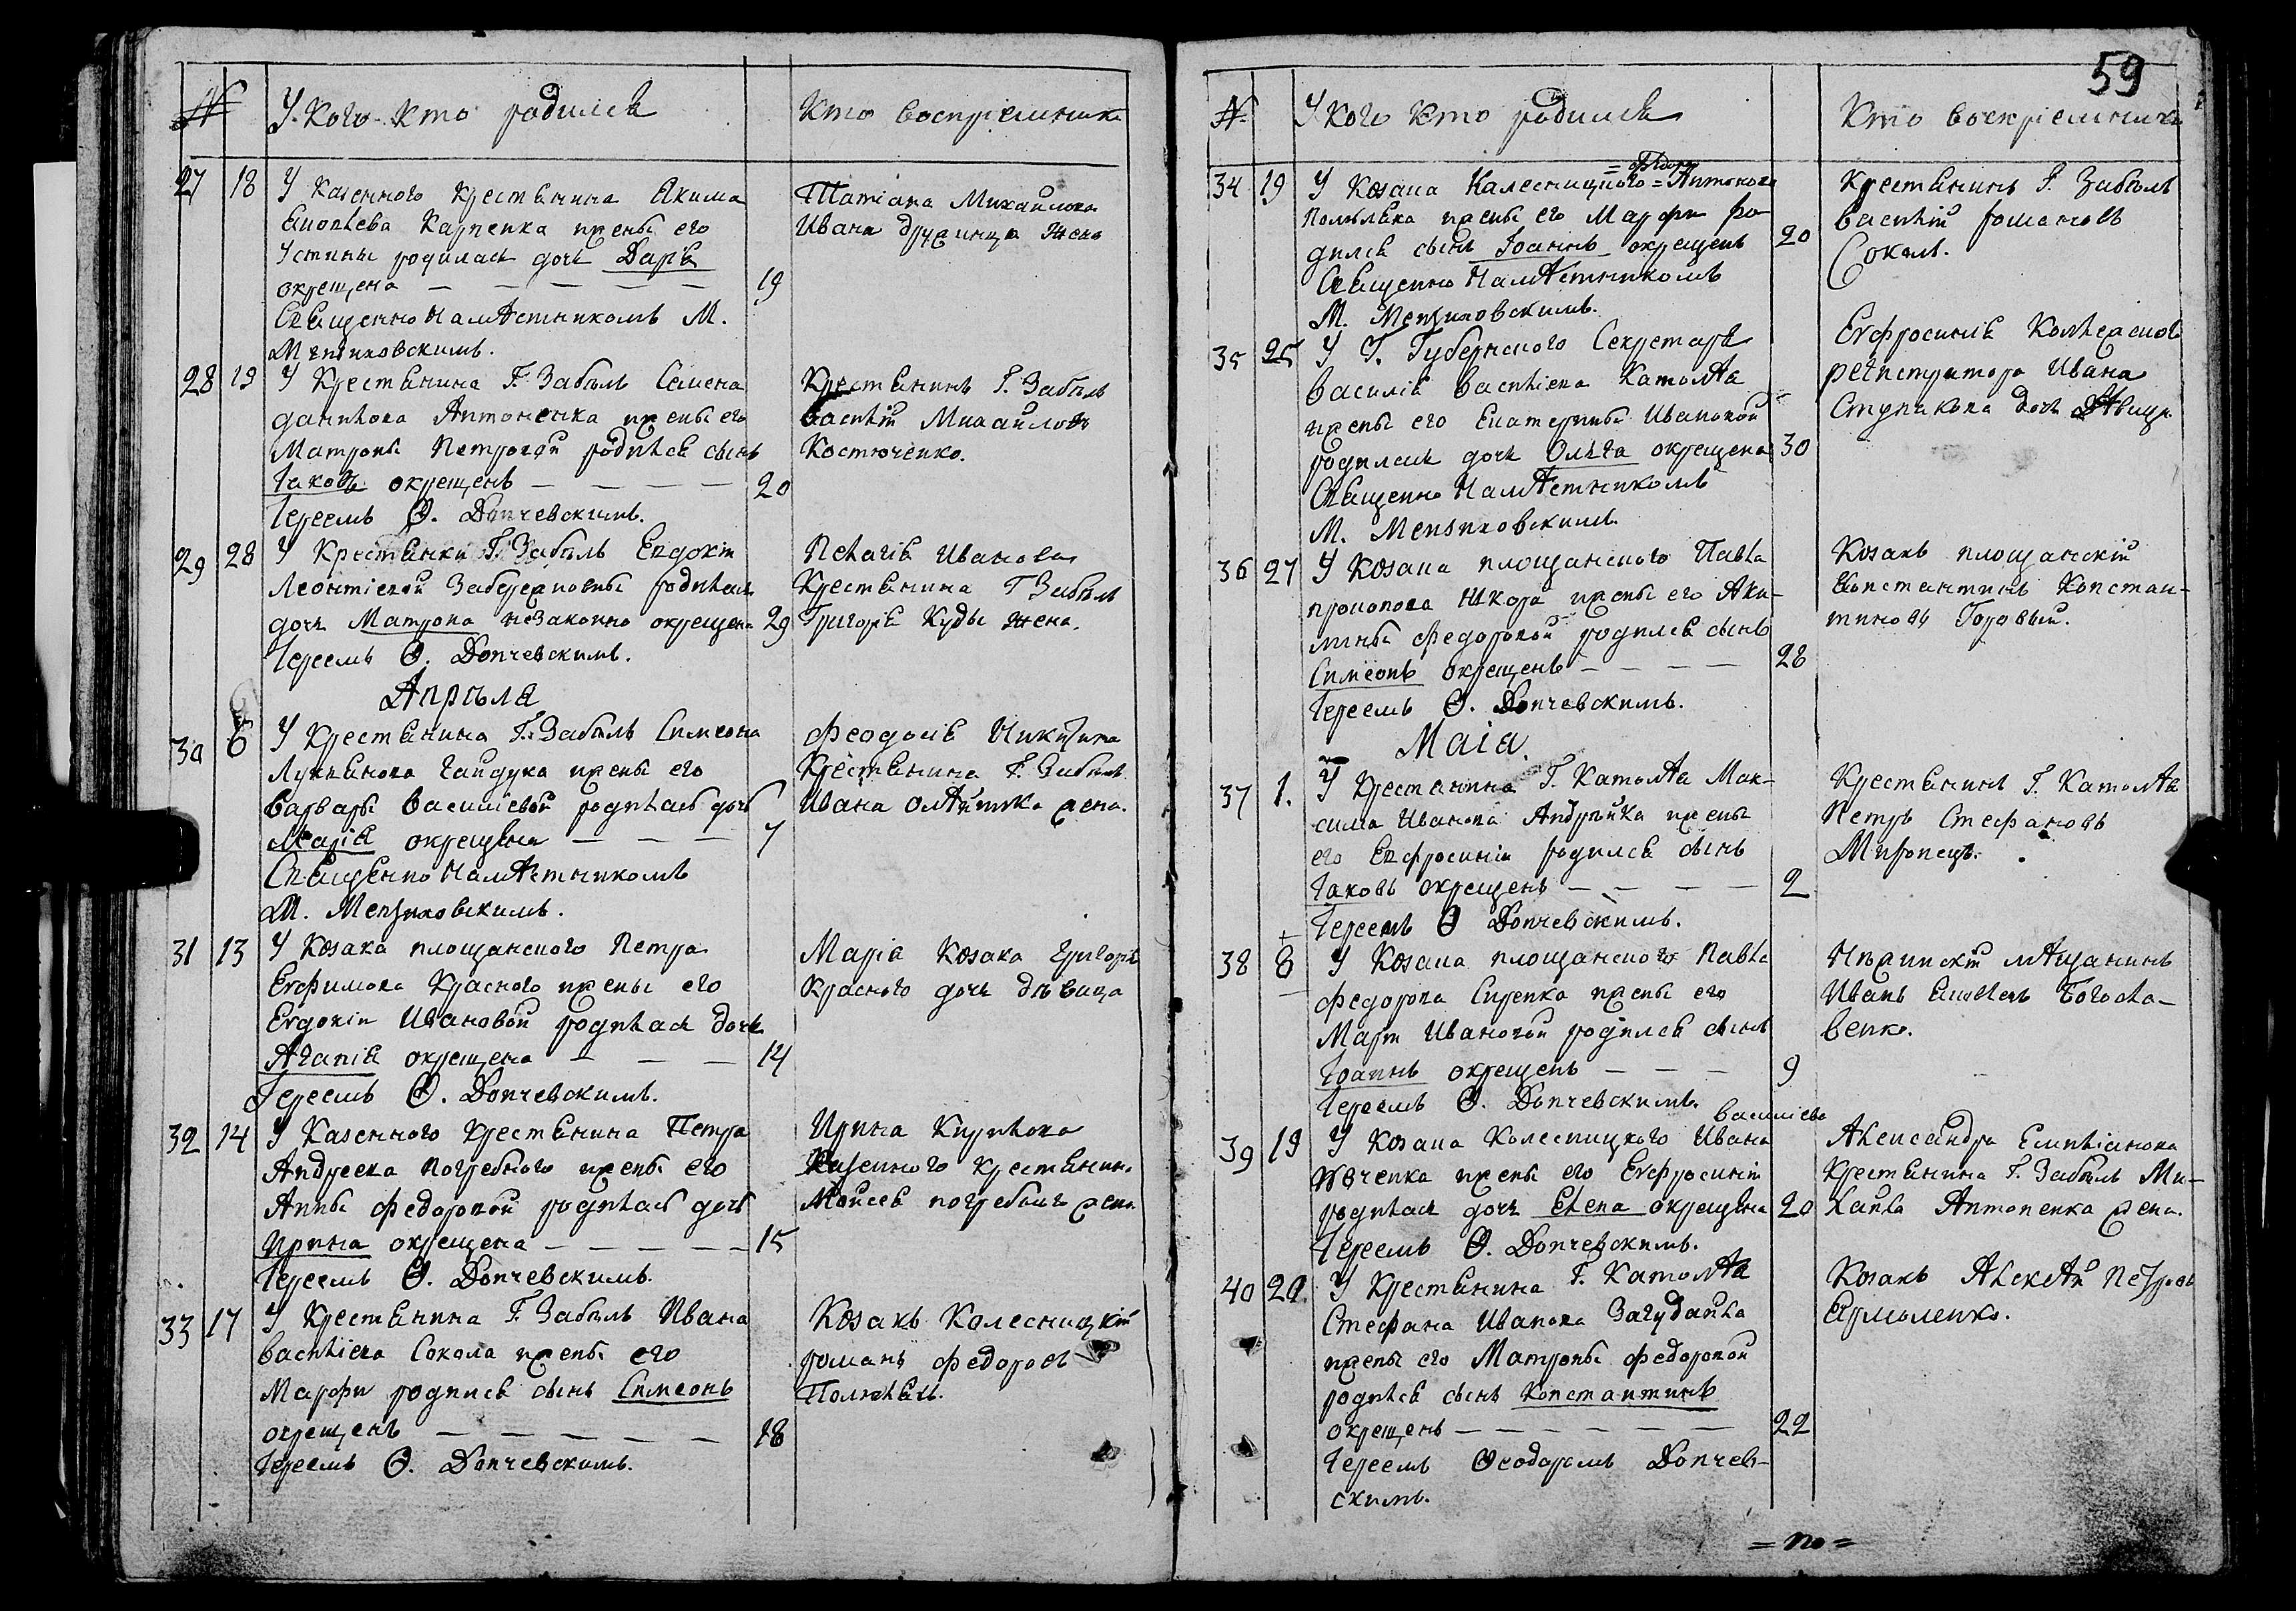 № У кого кто родился Кто воспрiемники
27 18 У казенного крестьянина Якима
Яковлева Карпенка жены его
Устины родилась дочь Дарья
окрещена — — — — — 19
Священно Намѣстникомъ М.
Мензиковскимъ.
Татiана Михайлова
Ивана жена
28 19 У крестьянина Г. Забѣлъ Семена
данилова Антоненка жены его
Матроны Петровой родился сынъ
Iаковъ окрещенъ — — — — 20
Iереемъ Ѳ. Допчевскимъ.
Крестьянинъ Г. Забѣлъ
василiй Михайловъ
Костюченко.
29 28 У крестьянки Г. Забѣлъ Евдокiи
Леонтiевой родилась
дочь Матрона незаконно окрещена 29
Iереемъ Ѳ. Допчевскимъ.
Пелагiя Иванова
крестьянина Г Забѣлъ
Григорiя Куды жена.
Апрѣля
30 6 У крестьянина Г. Забѣлъ Симеона
Лукьянова Гайдука жены его
варвары васильевой родилась дочь
Марiя окрещена — — — 7
Священно Намѣстникомъ
М. Мензиковскимъ.
Феодосiя Никитина
крестьянина Г. Забѣлъ
Ивана жена.
31 13 У козака площанского Петра
Евфимова Красного жены его
Евдокiи Ивановой родилась дочь
Агапiя окрещена — — — 14
Iереемъ Ѳ. Допчевскимъ.
Марiя козака Григорiя
Красного дочь дѣвица
32 14 У казенного крестьянина Петра
Андреева Погребного жены его
Анны Федоровой родилась дочь
Ирина окрещена — — — — — 15
Iереемъ Ѳ. Допчевскимъ.
Ирина Кирилова
казенного крестьянина
Моисея погребного жена
33 17 У крестьянина Г. Забѣлъ Ивана
васильева Сокола жены его
Марфы родился сынъ Симеонъ
окрещенъ — — — — — 18
Iереемъ Ѳ. Допчевскимъ.
Козакъ Колесницкiй
романъ федоровъ
Полюхъ.
59
№ У кого кто родился Кто воспрiемники
= Ѳедора
34 19 У козака Калесницкого = Антонова
жены его Марфы ро-
дился сынъ Iоаннъ окрещенъ 20
Священно Намѣстникомъ
М. Мензиковскимъ.
Крестьянинъ Г. Забѣлъ
василiй романовъ
Соколъ.
35 25 У Г. Губернского Секретаря
василiя васильева Катомѣа
жены его Екатерины Ивановой
родилась дочь Ольга окрещена 30
Священно Намѣстникомъ
М. Мензиковскимъ.
Евфросинiя Колежского
регистратора Ивана
Ступакова дочь дѣвица
36 27 У козака площанского Павла
прокопова Шкоры жены его Аку-
лины федоровой родился сынъ
Симеонъ окрещенъ — — — — 28
Iереемъ Ѳ. Допчевскимъ.
Козакъ площанскiй
константинъ Констан-
тиновъ Горовый.
Маiя.
37 1. У крестьянина Г. Катомѣа Мак-
сима Иванова Андрѣйка жены
его Евфросинiи родился сынъ
Iаковъ окрещенъ — — — — 2
Iереемъ Ѳ Допчевскимъ.
Крестьянинъ Г. Катомѣа
Петръ Стефановъ
Миронецъ.
38 8 У козака площанского Павла
федорова Сиренка жены его
Марiи Ивановой родился сынъ
Iоаннъ окрещенъ — — — 9
Iереемъ Ѳ. Допчевскимъ.
Нѣжинскiй мѣщанинъ
Иванъ Яковлевъ Богосла-
венко.
васильева
39 19 У козака Колесницкого Ивана
жены его Евфросинiи
родилась дочь Елена окрещена 20
Iереемъ Ѳ. Допчевскимъ.
Александра Емилiанова
крестьянина Г. Забѣлъ Ми-
хаила Антоненка жена.
40 21 У крестьянина Г. Катомѣа
Стефана Иванова Загудайла
жены его Матроны федоровой
родился сынъ константинъ
окрещенъ — — — — — — 22
Iереемъ Ѳеодоромъ Допчев-
скимъ.
Козакъ Алексѣй Петровъ
Ярмоленко.
= по =